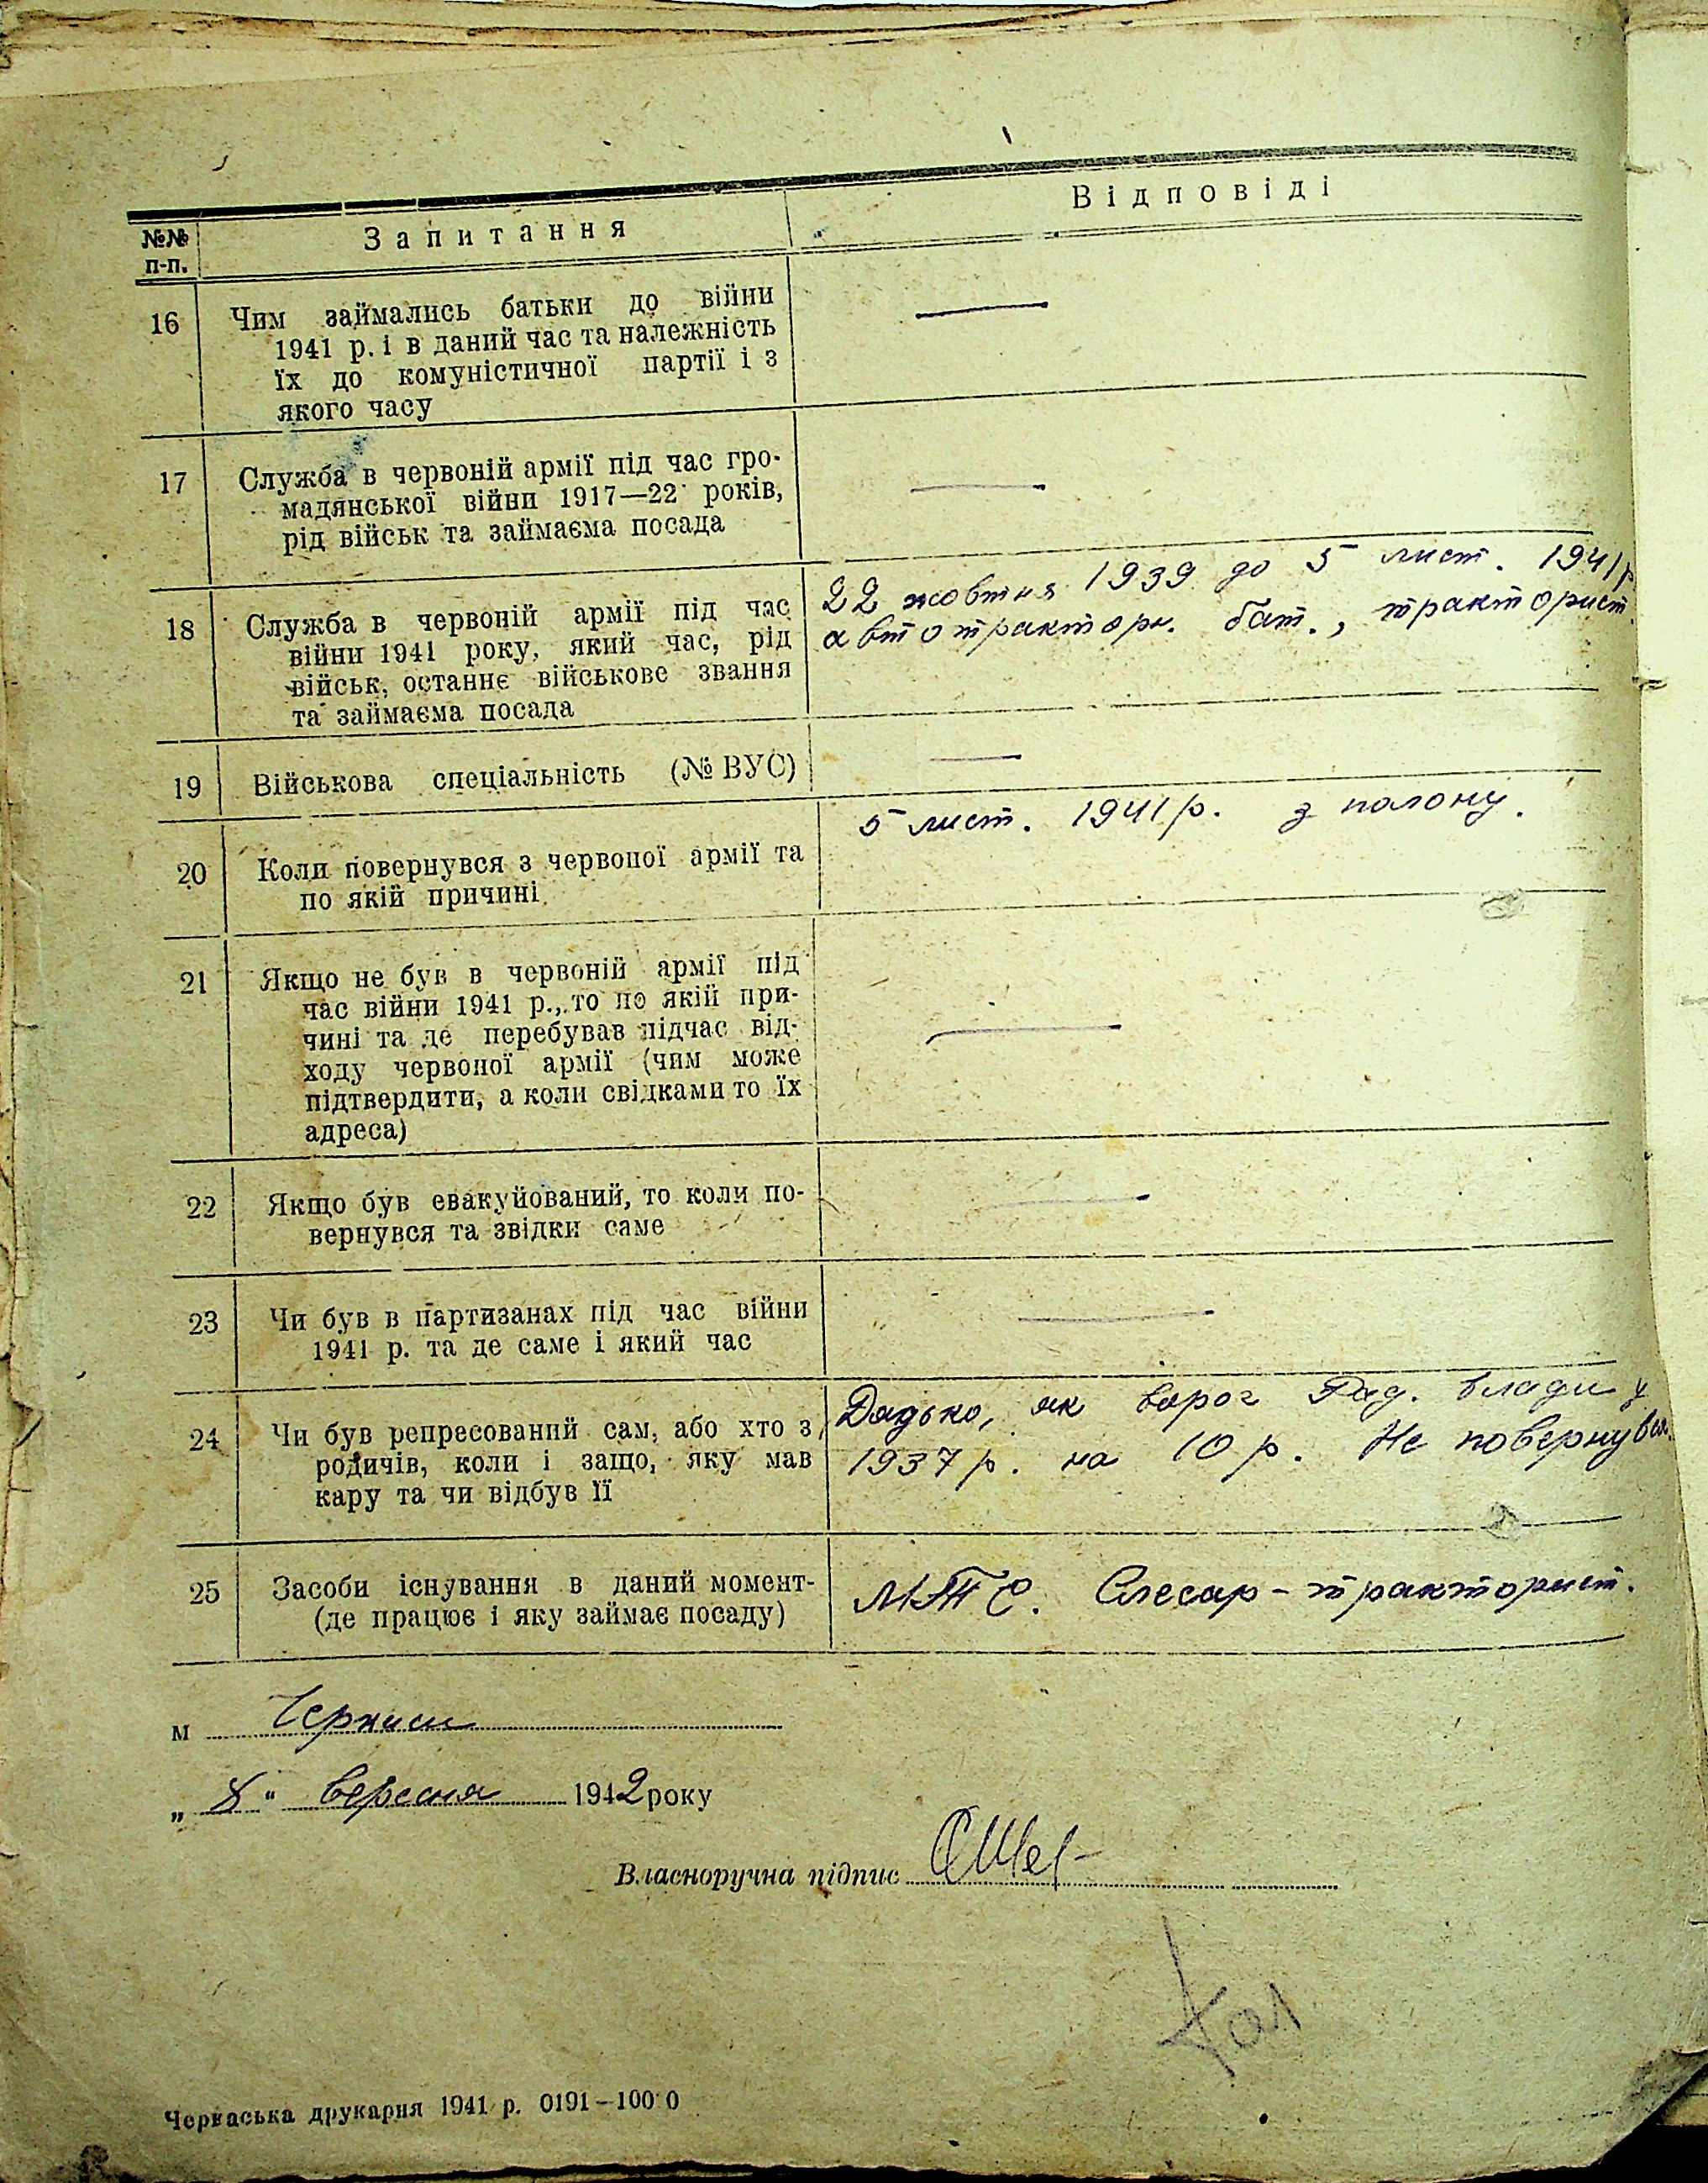 Відповіді
№№ Запитання
п-п.
16 Чим займались батьки до війни
1941 р. і в даний час та належність
їх до комуністичної партії і з
якого часу
17 Служба в червоній армії під час гро-
мадянської війни 1917—22 років,
рід військ та займаєма посада
18 Служба в червоній армії під час
війни 1941 року, який час, рід
військ, останнє військове звання
та займаєма посада
22 жовтня 1939 до 5 лист. 1941 р
автотракторн. бат., тракторист.
19 Військова спеціальність (№ ВУС)
20 Коли повернувся з червоної армії та
по якій причині
5 лист. 1941 р. з полону.
21 Якщо не був в червоній армії під
час війни 1941 р., то по якій при-
чині та де перебував підчас від-
ходу червоної армії (чим може
підтвердити, а коли свідками то їх
адреса)
22 Якщо був евакуйований, то коли по-
вернувся та звідки саме
23 Чи був в партизанах під час війни
1941 р. та де саме і який час
24 Чи був репресований сам, або хто з
родичів, коли і защо, яку мав
кару та чи відбув її
Дядько, як ворог Рад. влади у
1937 р. на 10 р. Не повернувся.
25 Засоби існування в даний момент-
(де працює і яку займає посаду)
МТС. Слесар-тракторист.
м
„ 8 “ вересня 1942 року
Власноручна підпис
Черкаська друкарня 1941 р. 0191—1000